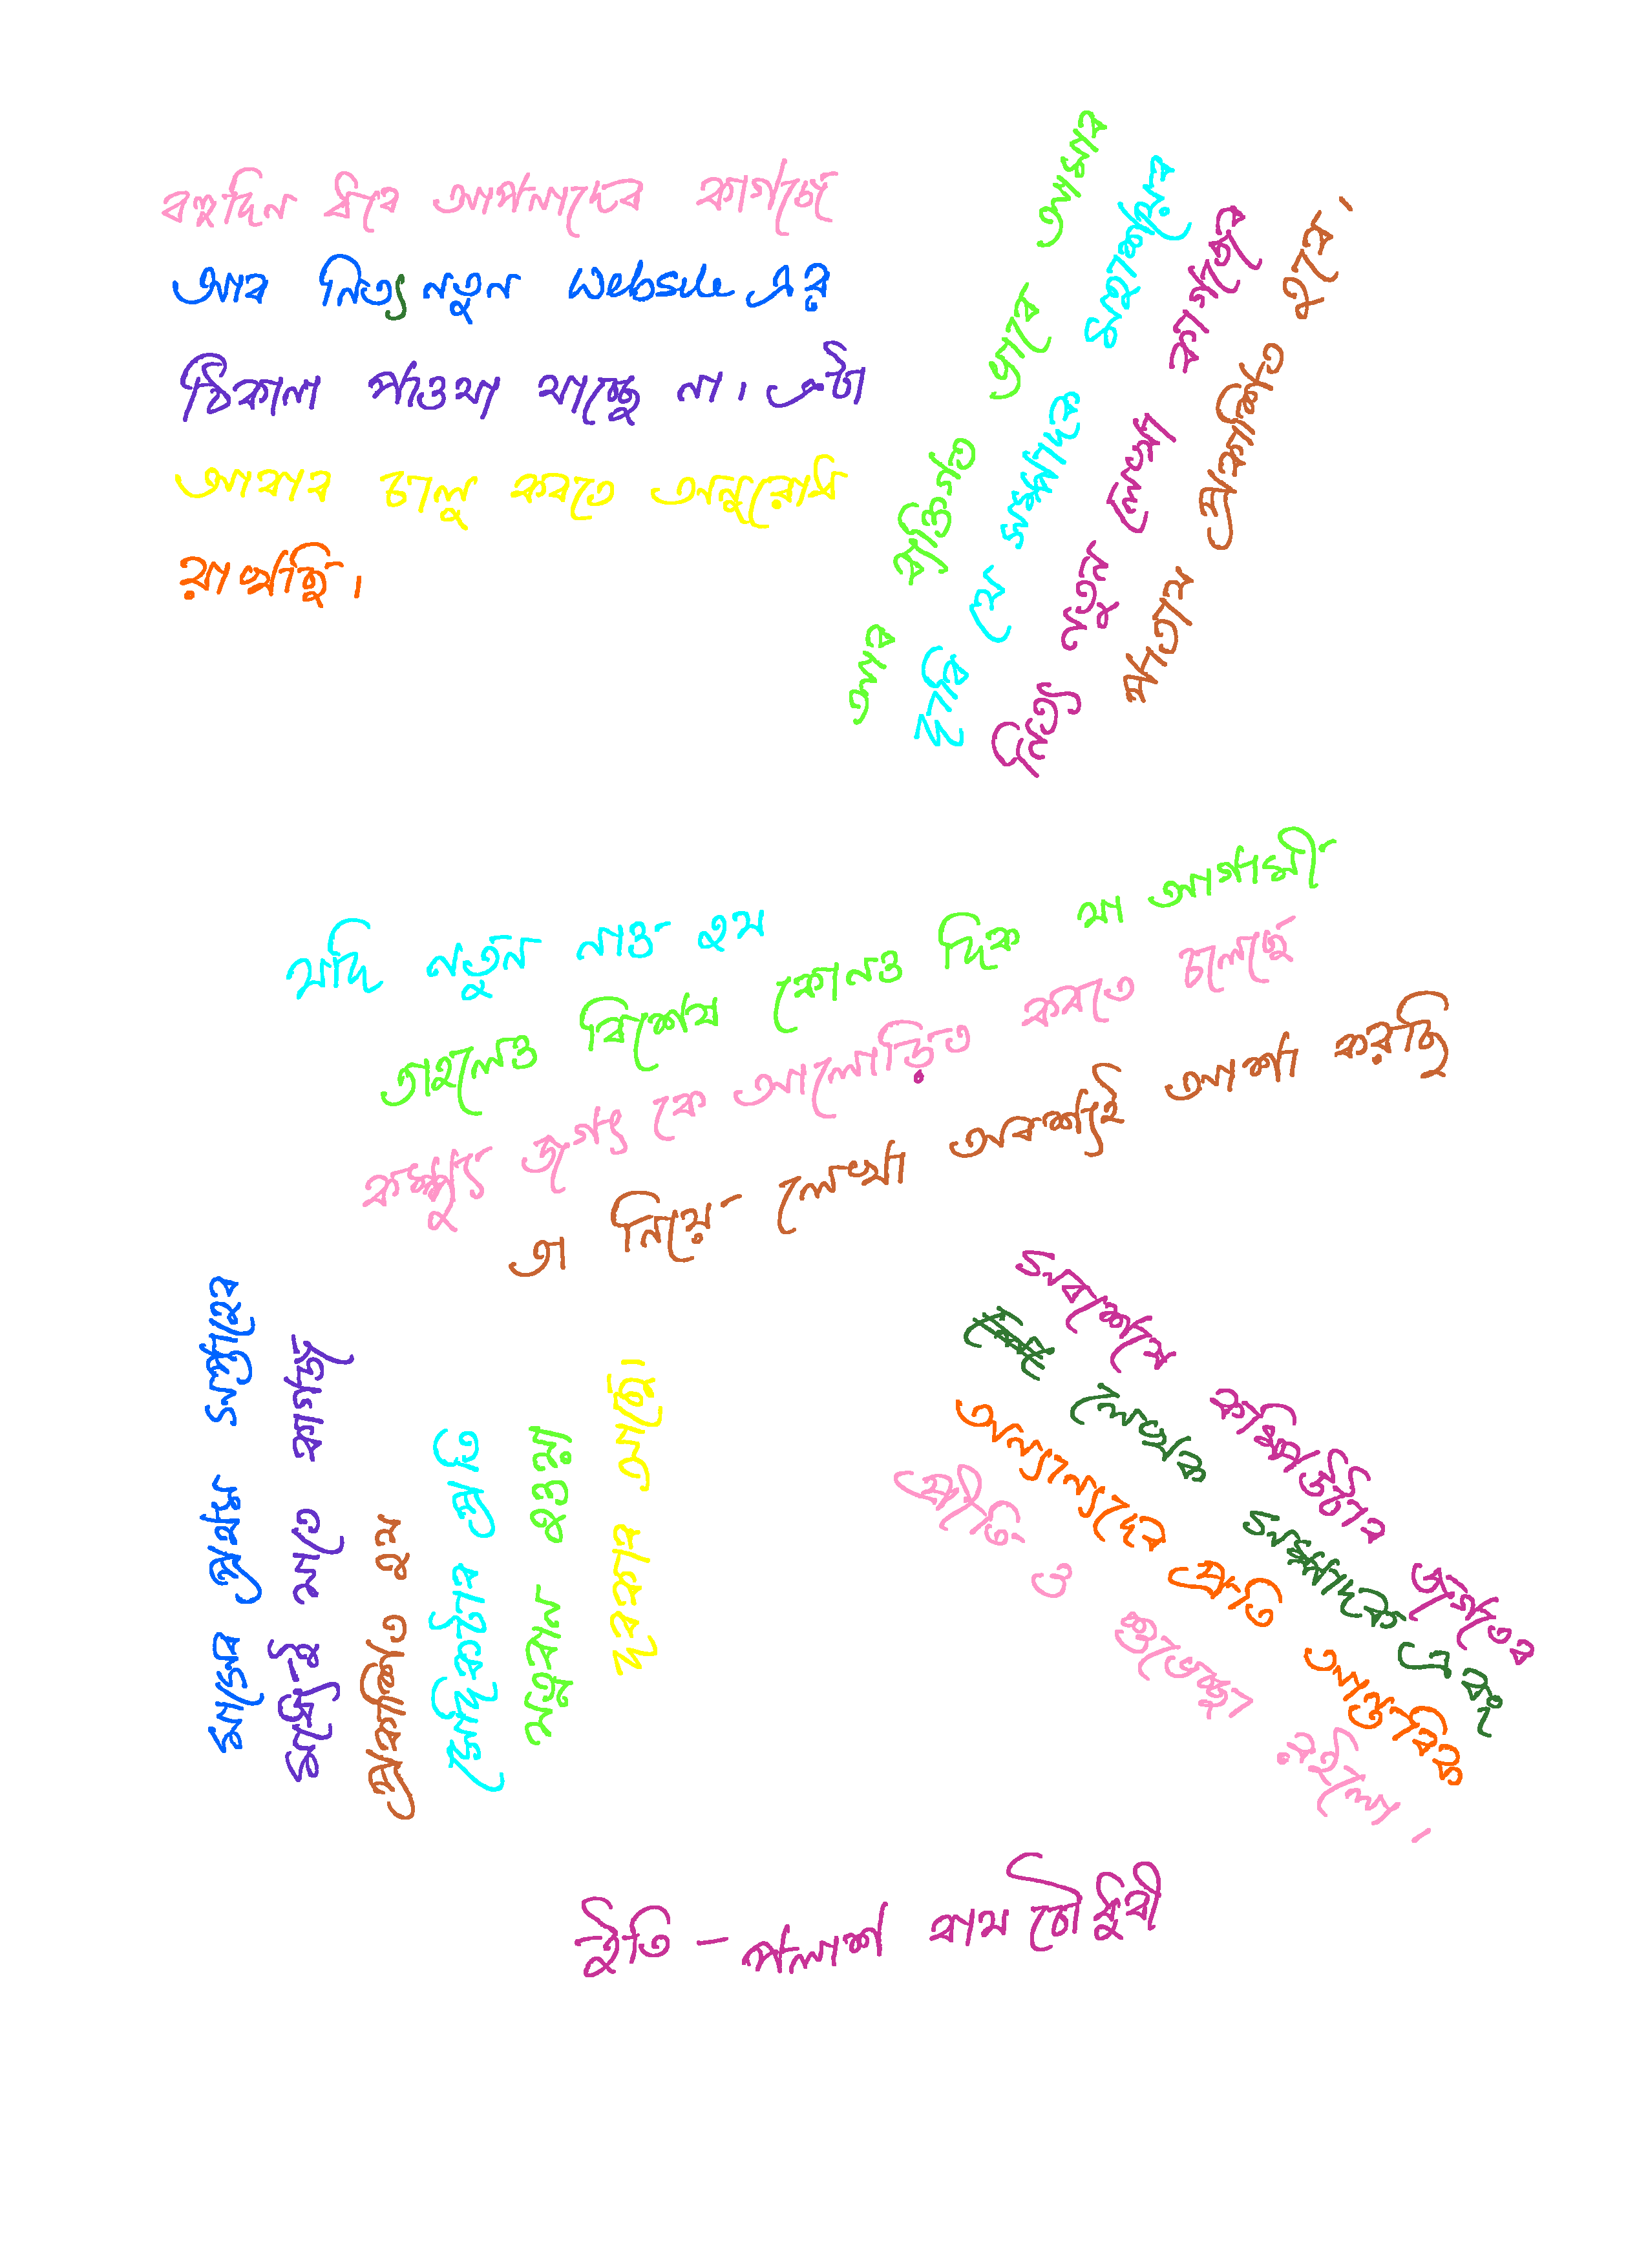 বহুদিন ধরে আপনাদের কাগচে
আর নিত্য নতুন website এর
ঠিকানা পাওযা যাচ্ছে না। এটা
আবার চালু করতে অনুরোধ
রাখছি।
আর ব্যক্তিগত ভাবে আমার
দাবি যে সম্পাদক মহাশয়ের
নিত্য নতুন লেখা কাগজের
পাতায প্রকাশিত হবে।
যদি নতুন নাও হয
তাহলেও বিশেষ কোনও দিক যা আগামী
কম্প্যু জগৎ কে আলোড়িত করতে চলেছে
তা নিয়ে লেখা অবশ্যই আশা করছি
মাসের প্রথম সপ্তাহের
মধ্যেই যাতে কাগজ
প্রকাশিত হয
সেদিকটার প্রতি
যত্নবান হওয়া
দরকার আছে।
সবশেষে কম্পিউটার জগতের
লেখক সম্পাদক এবং
অন্যান্যদের প্রতি আন্তরিক
প্রীতি ও শুভেচ্ছা রইলো।
ইতি - পলাশ রায চৌধুরী